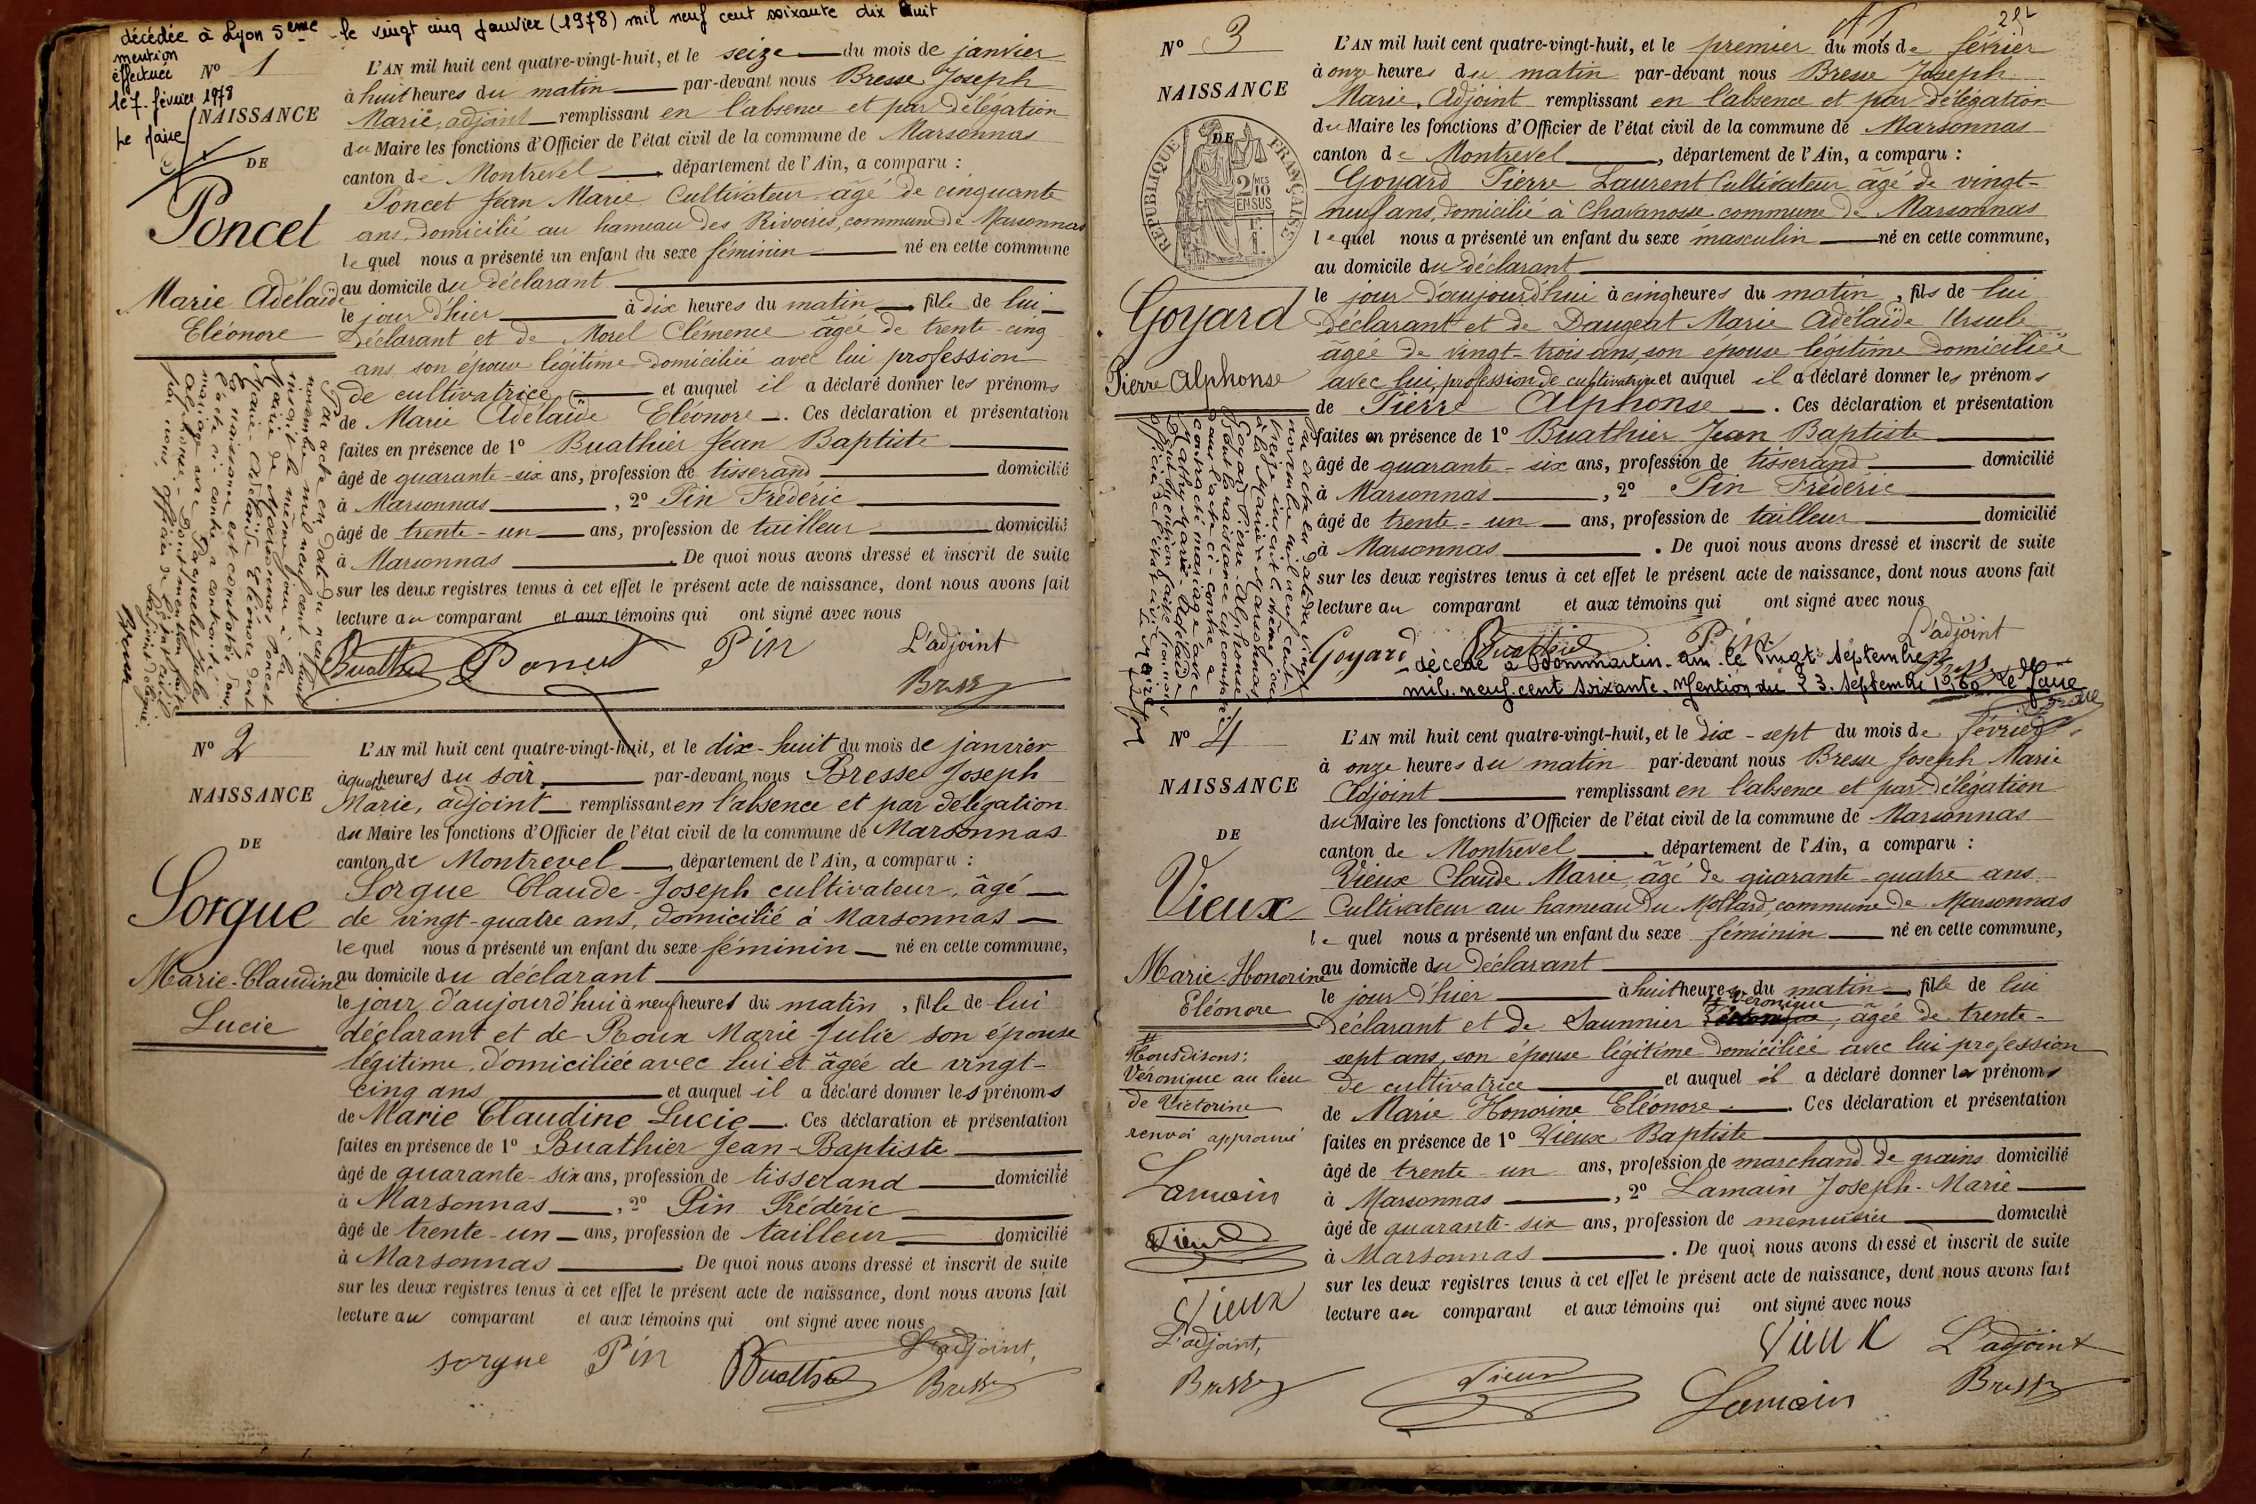 décédée à Lyon 5ème le vingt cinq Janvier (1978) mil neuf cent soixante dix huit
mention
éffectuée
le 7 février 1978
Le Maire
N° 1
NAISSANCE
DE
Poncet
Marie Adélaïde
Eléonore
L'AN mil huit cent quatre-vingt-huit, et le seize du mois de janvier
à huit heures du matin par-devant nous Bresse Joseph
Marie, adjoint remplissant en l'absence et par délégation
du Maire les fonctions d'Officier de l'état civil de la commune de Marsonnas
canton de Montrevel, département de l'Ain, a comparu :
Poncet Jean Marie Cultivateur âgé de cinquante
ans, domicilié au hameau des Rivoires, commune de Marsonnas
lequel nous a présenté un enfant du sexe féminin né en cette commune
au domicile du déclarant
le jour d'hier à dix heures du matin, fille de lui
déclarant et de Morel Clémence âgée de trente-cinq
ans son épouse légitime domiciliée avec lui profession
de cultivatrice et auquel il a déclaré donner les prénoms
de Marie Adélaïde Eléonore. Ces déclaration et présentation
faites en présence de 1° Buathier Jean Baptiste
âgé de quarante-six ans, profession de tisserand domicilié
à Marsonnas, 2° Pin Frédéric
âgé de trente-un ans, profession de tailleur domicilié
à Marsonnas. De quoi nous avons dressé et inscrit de suite
sur les deux registres tenus à cet effet le présent acte de naissance, dont nous avons fait
lecture au comparant et aux témoins qui ont signé avec nous
Par acte en date du neuf
novembre mil neuf cent huit
inscrit le même jour à la
Mairie de Marsonnas Poncet
Marie-Adélaïde Eléonore dont
la naissance est constatée dans
l'acte ci-contre a contracté
mariage avec
Alphonse. Dont mention faite
par nous, officier de l'état civil
Buathier Poncet Pin L'adjoint
Bresse
N° 2
NAISSANCE
DE
Sorgue
Marie-Claudine
Lucie
L'AN mil huit cent quatre-vingt-huit, et le dix-huit du mois de janvier
à quatre heures du soir, par-devant nous Bresse Joseph
Marie, adjoint remplissant en l'absence et par délégation
du Maire les fonctions d'Officier de l'état civil de la commune de Marsonnas
canton de Montrevel, département de l'Ain, a comparu :
Sorgue Claude-Joseph cultivateur, âgé
de vingt-quatre ans, domicilié à Marsonnas
lequel nous a présenté un enfant du sexe féminin né en cette commune,
au domicile du déclarant
le jour d'aujourd'hui à neuf heures du matin, fille de lui
déclarant et de Roux Marie Julie son épouse
légitime, domiciliée avec lui et âgée de vingt-
cinq ans et auquel il a déclaré donner les prénoms
de Marie Claudine Lucie. Ces déclaration et présentation
faites en présence de 1° Buathier Jean-Baptiste
âgé de quarante-six ans, profession de tisserand domicilié
à Marsonnas, 2° Pin Frédéric
âgé de trente-un ans, profession de tailleur domicilié
à Marsonnas. De quoi nous avons dressé et inscrit de suite
sur les deux registres tenus à cet effet le présent acte de naissance, dont nous avons fait
lecture au comparant et aux témoins qui ont signé avec nous
sorgue Pin Buathier L'adjoint,
Bresse
N° 3
NAISSANCE
DE
RÉPUBLIQUE FRANÇAISE
2 MES 10
EN SUS
Goyard
Pierre Alphonse
L'AN mil huit cent quatre-vingt-huit, et le premier du mois de février
à onze heures du matin par-devant nous Bresse Joseph
Marie, Adjoint remplissant en l'absence et par délégation
du Maire les fonctions d'Officier de l'état civil de la commune de Marsonnas
canton de Montrevel, département de l'Ain, a comparu :
Goyard Pierre Laurent Cultivateur âgé de vingt-
neuf ans, domicilié à Chavanosse commune de Marsonnas
lequel nous a présenté un enfant du sexe masculin né en cette commune,
au domicile du déclarant
le jour d'aujourd'hui à cinq heures du matin, fils de lui
déclarant et de Daugeat Marie Adélaïde Ursule
âgée de vingt-trois ans, son épouse légitime domiciliée
avec lui, profession de cultivatrice et auquel il a déclaré donner les prénoms
de Pierre Alphonse. Ces déclaration et présentation
faites en présence de 1° Buathier Jean Baptiste
âgé de quarante-six ans, profession de tisserand domicilié
à Marsonnas, 2° Pin Frédéric
âgé de trente-un ans, profession de tailleur domicilié
à Marsonnas. De quoi nous avons dressé et inscrit de suite
sur les deux registres tenus à cet effet le présent acte de naissance, dont nous avons fait
lecture au comparant et aux témoins qui ont signé avec nous
Par acte en date du vingt
novembre mil neuf cent
treize inscrit le même jour
à la Mairie de Marsonnas
Goyard Pierre-Alphonse
dont la naissance est constatée
dans l'acte ci-contre a
contracté mariage avec
Mathy Marie
Dont mention faite par nous
officier de l'état civil
Le Maire
Goyard Buathier Pin L'adjoint
Bresse
décédé à Dommartin. Ain. le vingt Septembre
mil. neuf. cent soixante. Mention du 23. Septembre 1960 Le Maire
N° 4
NAISSANCE
DE
Vieux
Marie-Honorine
Eléonore
Nous disons :
Véronique au lieu
de Victorine
renvoi approuvé
Lamain
Vieux
Vieux
L'adjoint,
Bresse
L'AN mil huit cent quatre-vingt-huit, et le dix-sept du mois de février
à onze heures du matin par-devant nous Bresse Joseph Marie
Adjoint remplissant en l'absence et par délégation
du Maire les fonctions d'Officier de l'état civil de la commune de Marsonnas
canton de Montrevel, département de l'Ain, a comparu :
Vieux Claude Marie, âgé de quarante-quatre ans
Cultivateur au hameau du Mollard, commune de Marsonnas
lequel nous a présenté un enfant du sexe féminin né en cette commune,
au domicile du déclarant
le jour d'hier à huit heures du matin, fille de lui
Véronique
déclarant et de Saunnier Victorine, âgée de trente-
sept ans, son épouse légitime domiciliée avec lui profession
de cultivatrice et auquel il a déclaré donner les prénoms
de Marie Honorine Eléonore. Ces déclaration et présentation
faites en présence de 1° Vieux Baptiste
âgé de trente-un ans, profession de marchand de grains domicilié
à Marsonnas, 2° Lamain Joseph-Marie
âgé de quarante-six ans, profession de menuisier domicilié
à Marsonnas. De quoi nous avons dressé et inscrit de suite
sur les deux registres tenus à cet effet le présent acte de naissance, dont nous avons fait
lecture au comparant et aux témoins qui ont signé avec nous
Vieux L'adjoint
Vieux Lamain Bresse